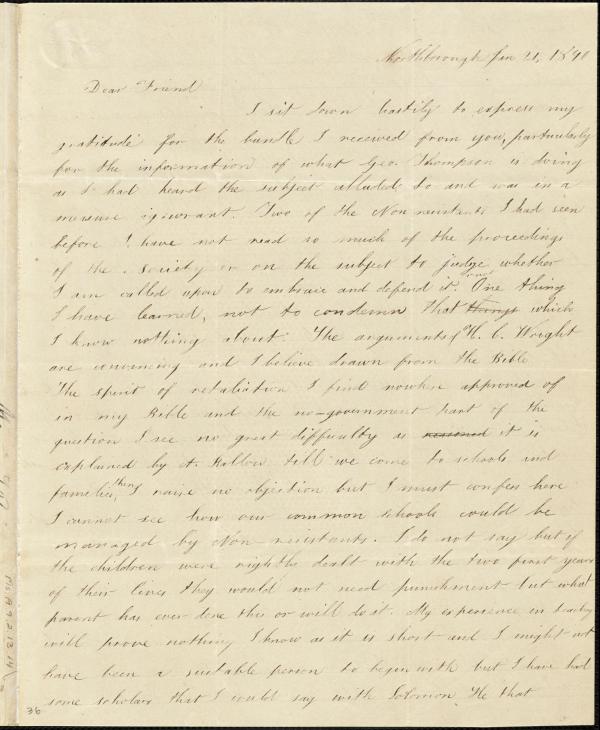 Northborough Jan 21, 1840
Dear Friend
I sit down hastily to express my
gratitude for the bundle I received from you, particularly
for the information of what Geo. Thompson is doing
as I had heard the subject alluded to and was in a
measure ignorant. Two of the Non resistants I had seen
before I have not read so much of the proceedings
of the Society or on the subject to judge whether
I am called upon to embrace and defend it or not. One thing
I have learned, not to condemn that things which
I know nothing about. The arguments of H. C. Wright
are convincing and I believe drawn from the Bible
The spirit of retaliation I find nowhere approved of
in my Bible and the no-government part of the
question I see no great difficulty as reasoned it is
explained by A. Ballou till we come to schools and
families, then I raise no objection but I must confess here
I cannot see how our common schools could be
managed by Non-resistants. I do not say but if
the children were rightly dealt with the two first years
of their lives they would not need punishment but what
parent has ever done this or will do it. My experience in teaching
will prove nothing I know as it is short and I might not
have been a suitable person to begin with but I have had
some scholars that I could say with Solomon "He that
36